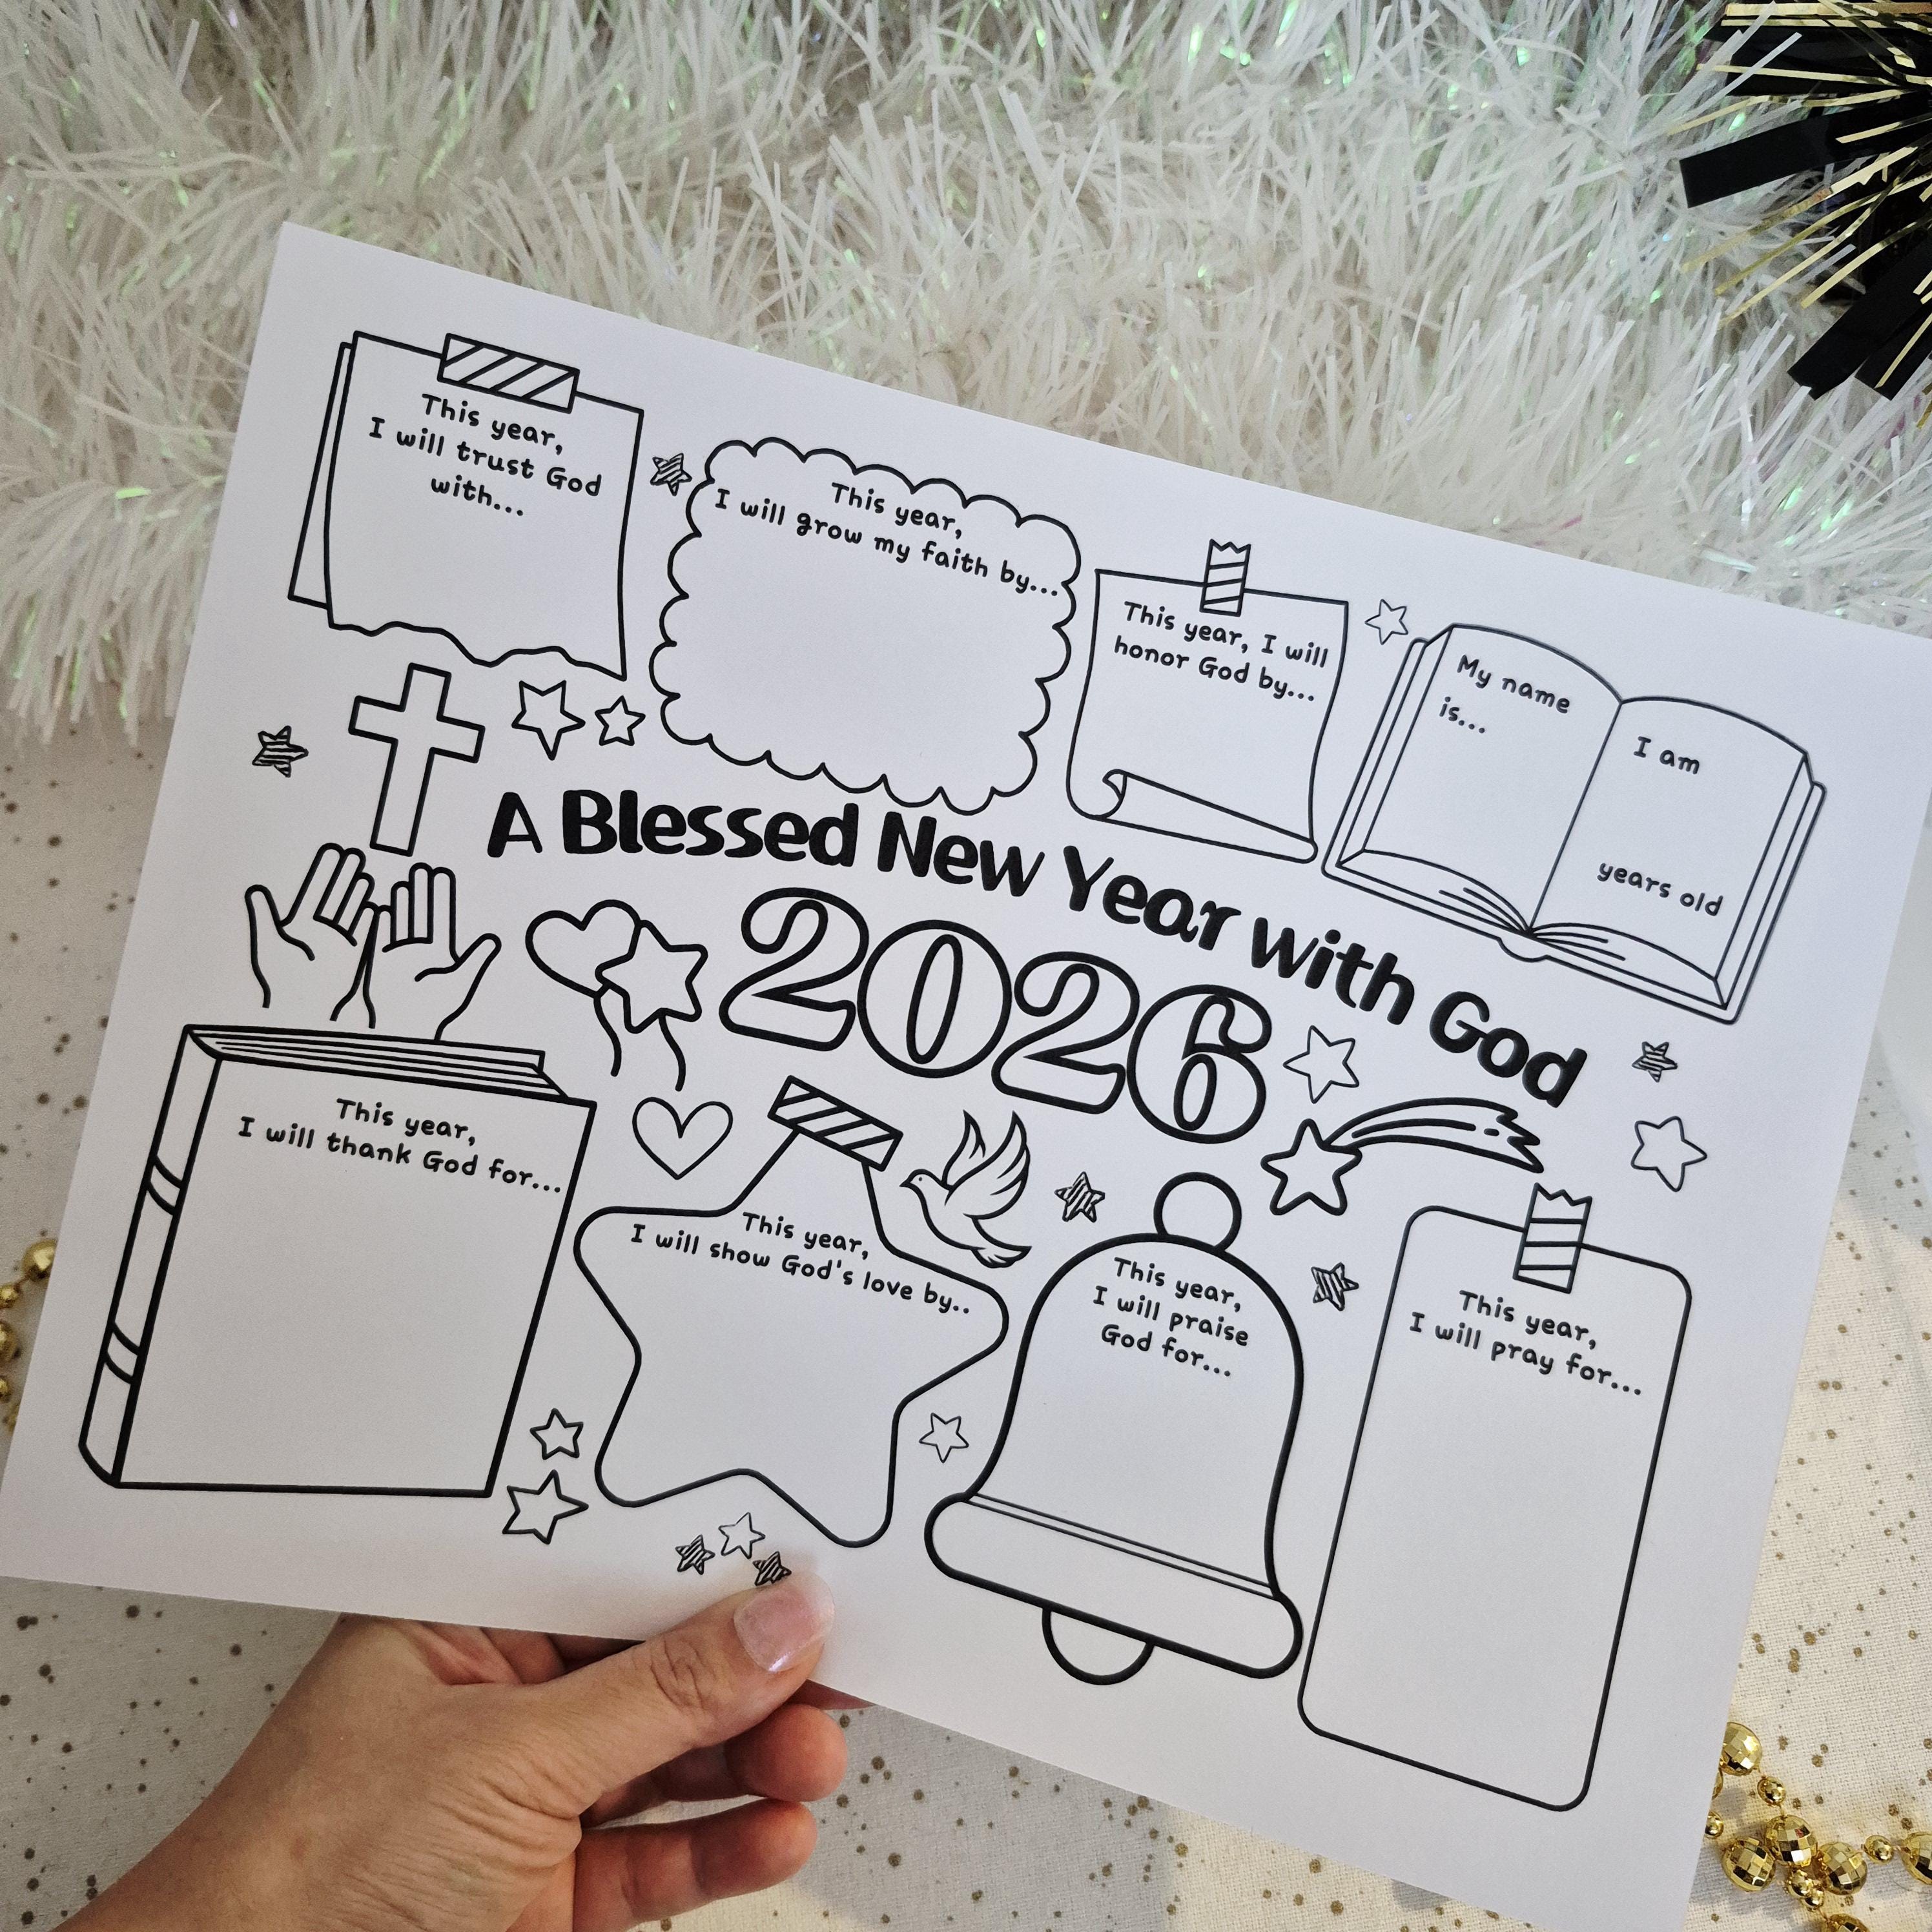 This year,
I will trust God
with...
This year,
I will grow my faith by...
This year, I will
honor God by...
My name
is...
I am
years old
A Blessed New Year with God
2026
This year,
I will thank God for...
This year,
I will show God's love by..
This year,
I will praise
God for...
This year,
I will pray for...